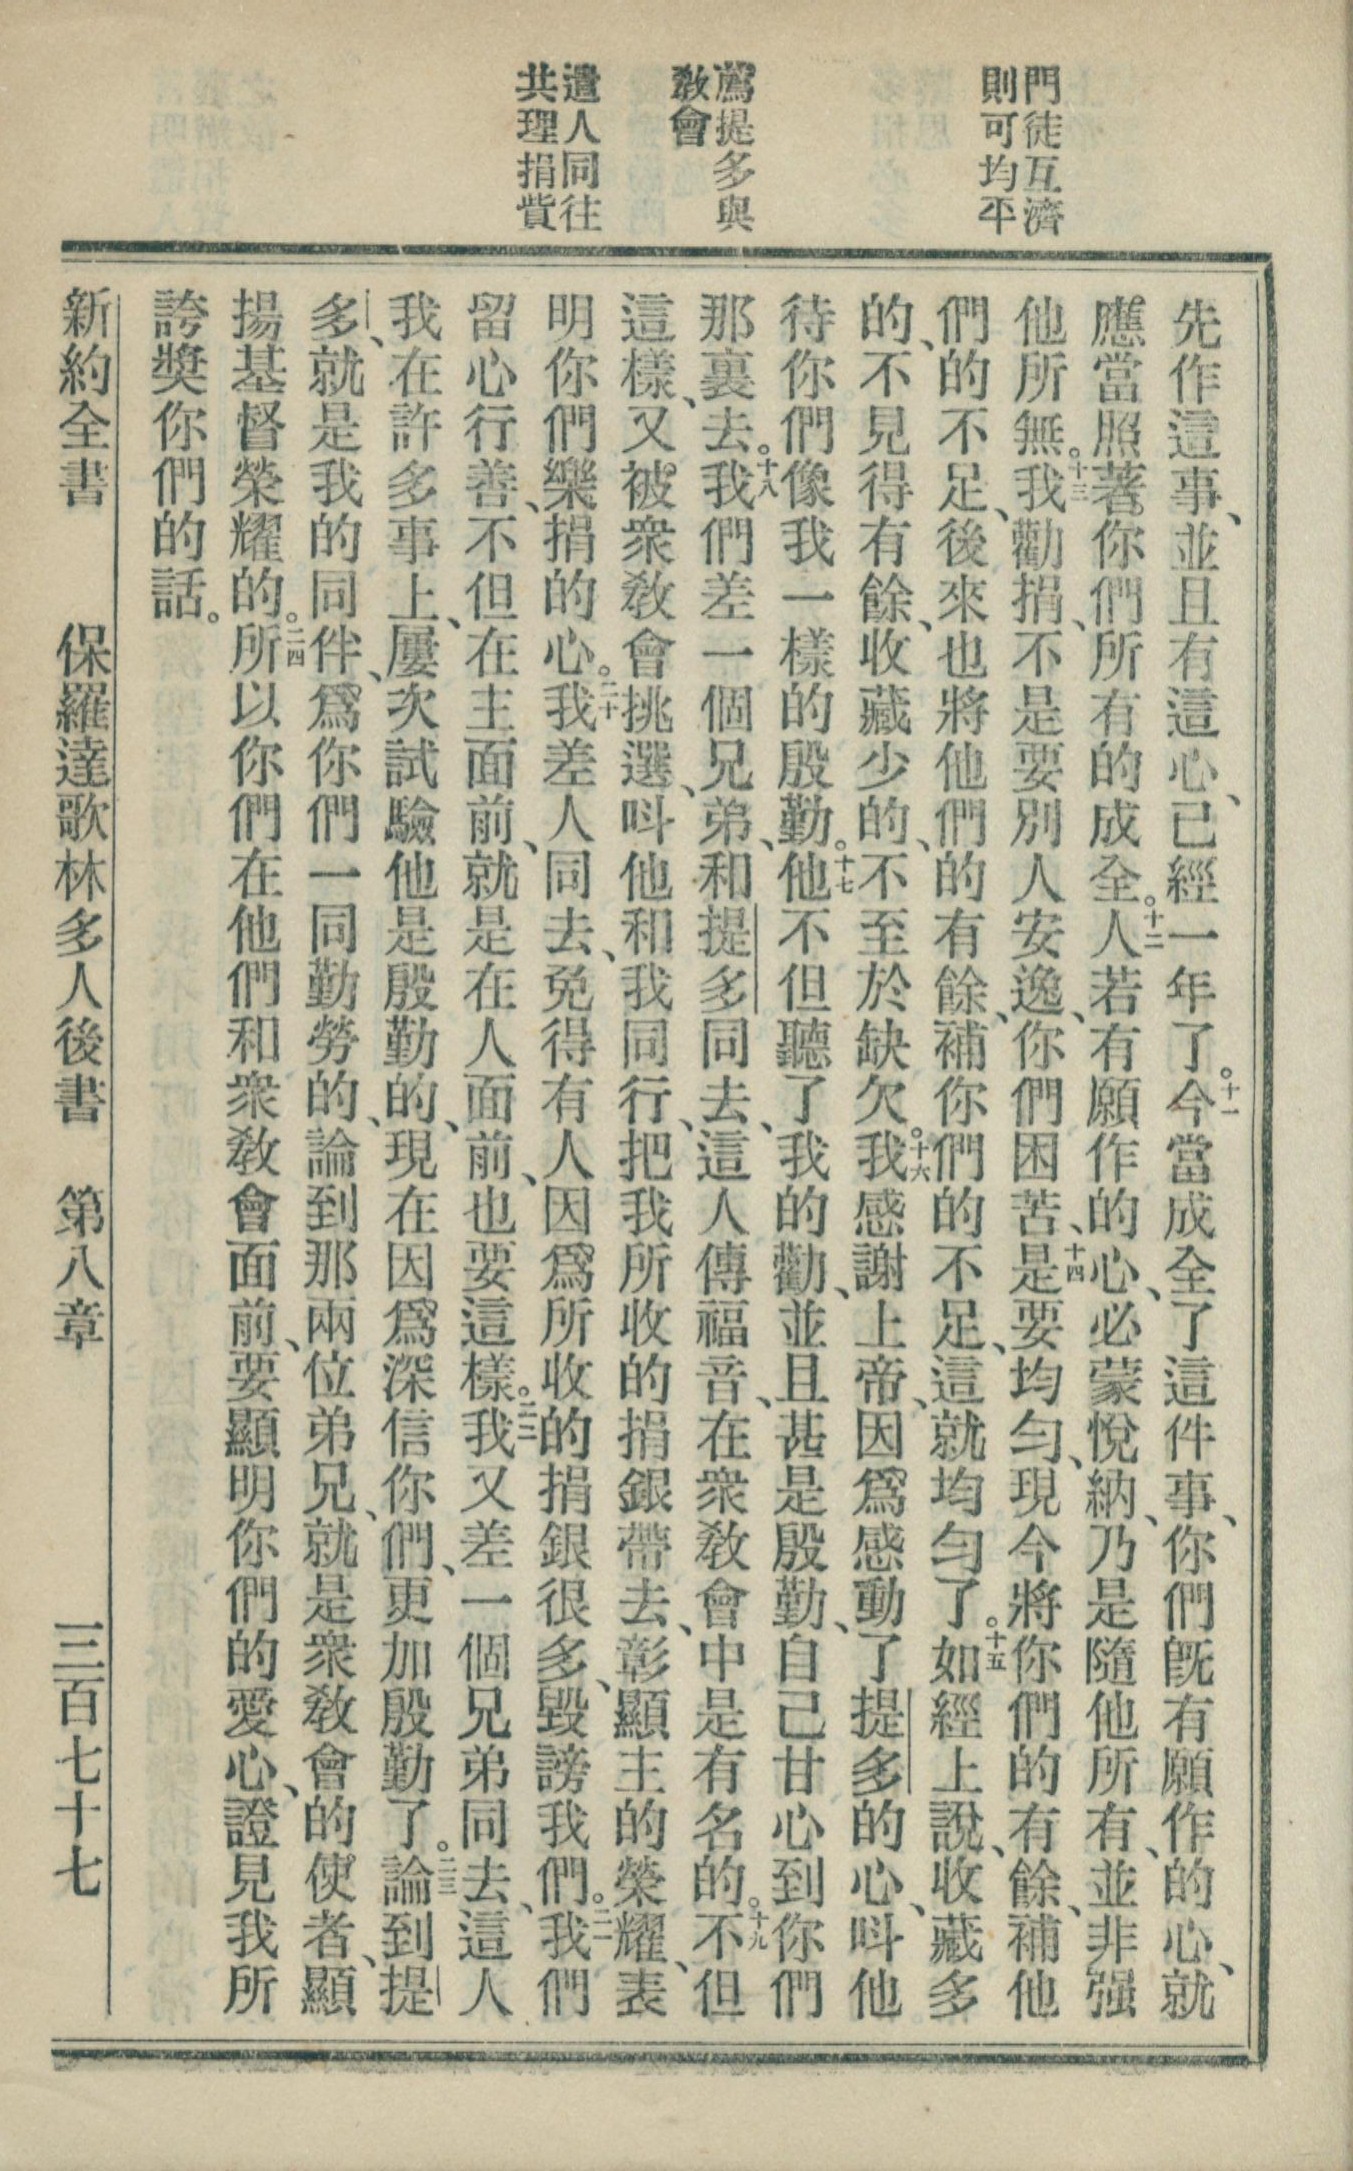 門徒互濟
則可均平
薦提多與
敎會
遣人同往
共理捐貲
先作這事、並且有這心、已經一年了。十一今當成全了這件事、你們旣有願作的心、就
應當照著你們所有的成全。十二人若有願作的心、必蒙悅納、乃是隨他所有、並非强
他所無。十三我勸捐、不是要別人安逸、你們困苦、十四是要均勻、現今將你們的有餘、補他
們的不足、後來也將他們的有餘、補你們的不足、這就均勻了。十五如經上說、收藏多
的、不見得有餘、收藏少的、不至於缺欠。十六我感謝上帝、因爲感動了提多的心、呌他
待你們像我一樣的殷勤。十七他不但聽了我的勸、並且甚是殷勤、自己甘心到你們
那裏去。十八我們差一個兄弟、和提多同去、這人傳福音、在衆敎會中是有名的。十九不但
這樣、又被衆敎會挑選、呌他和我同行、把我所收的捐銀帶去、彰顯主的榮耀、表
明你們樂捐的心。二十我差人同去、免得有人因爲所收的捐銀很多、毀謗我們。二一我們
留心行善、不但在主面前、就是在人面前、也要這樣。二二我又差一個兄弟同去、這人
我在許多事上、屢次試驗他是殷勤的、現在因爲深信你們、更加殷勤了。二三論到提
多、就是我的同伴、爲你們一同勤勞的、論到那兩位弟兄、就是衆敎會的使者、顯
揚基督榮耀的。二四所以你們在他們和衆敎會面前、要顯明你們的愛心、證見我所
誇獎你們的話。
新約全書　保羅達歌林多人後書　第八章　三百七十七